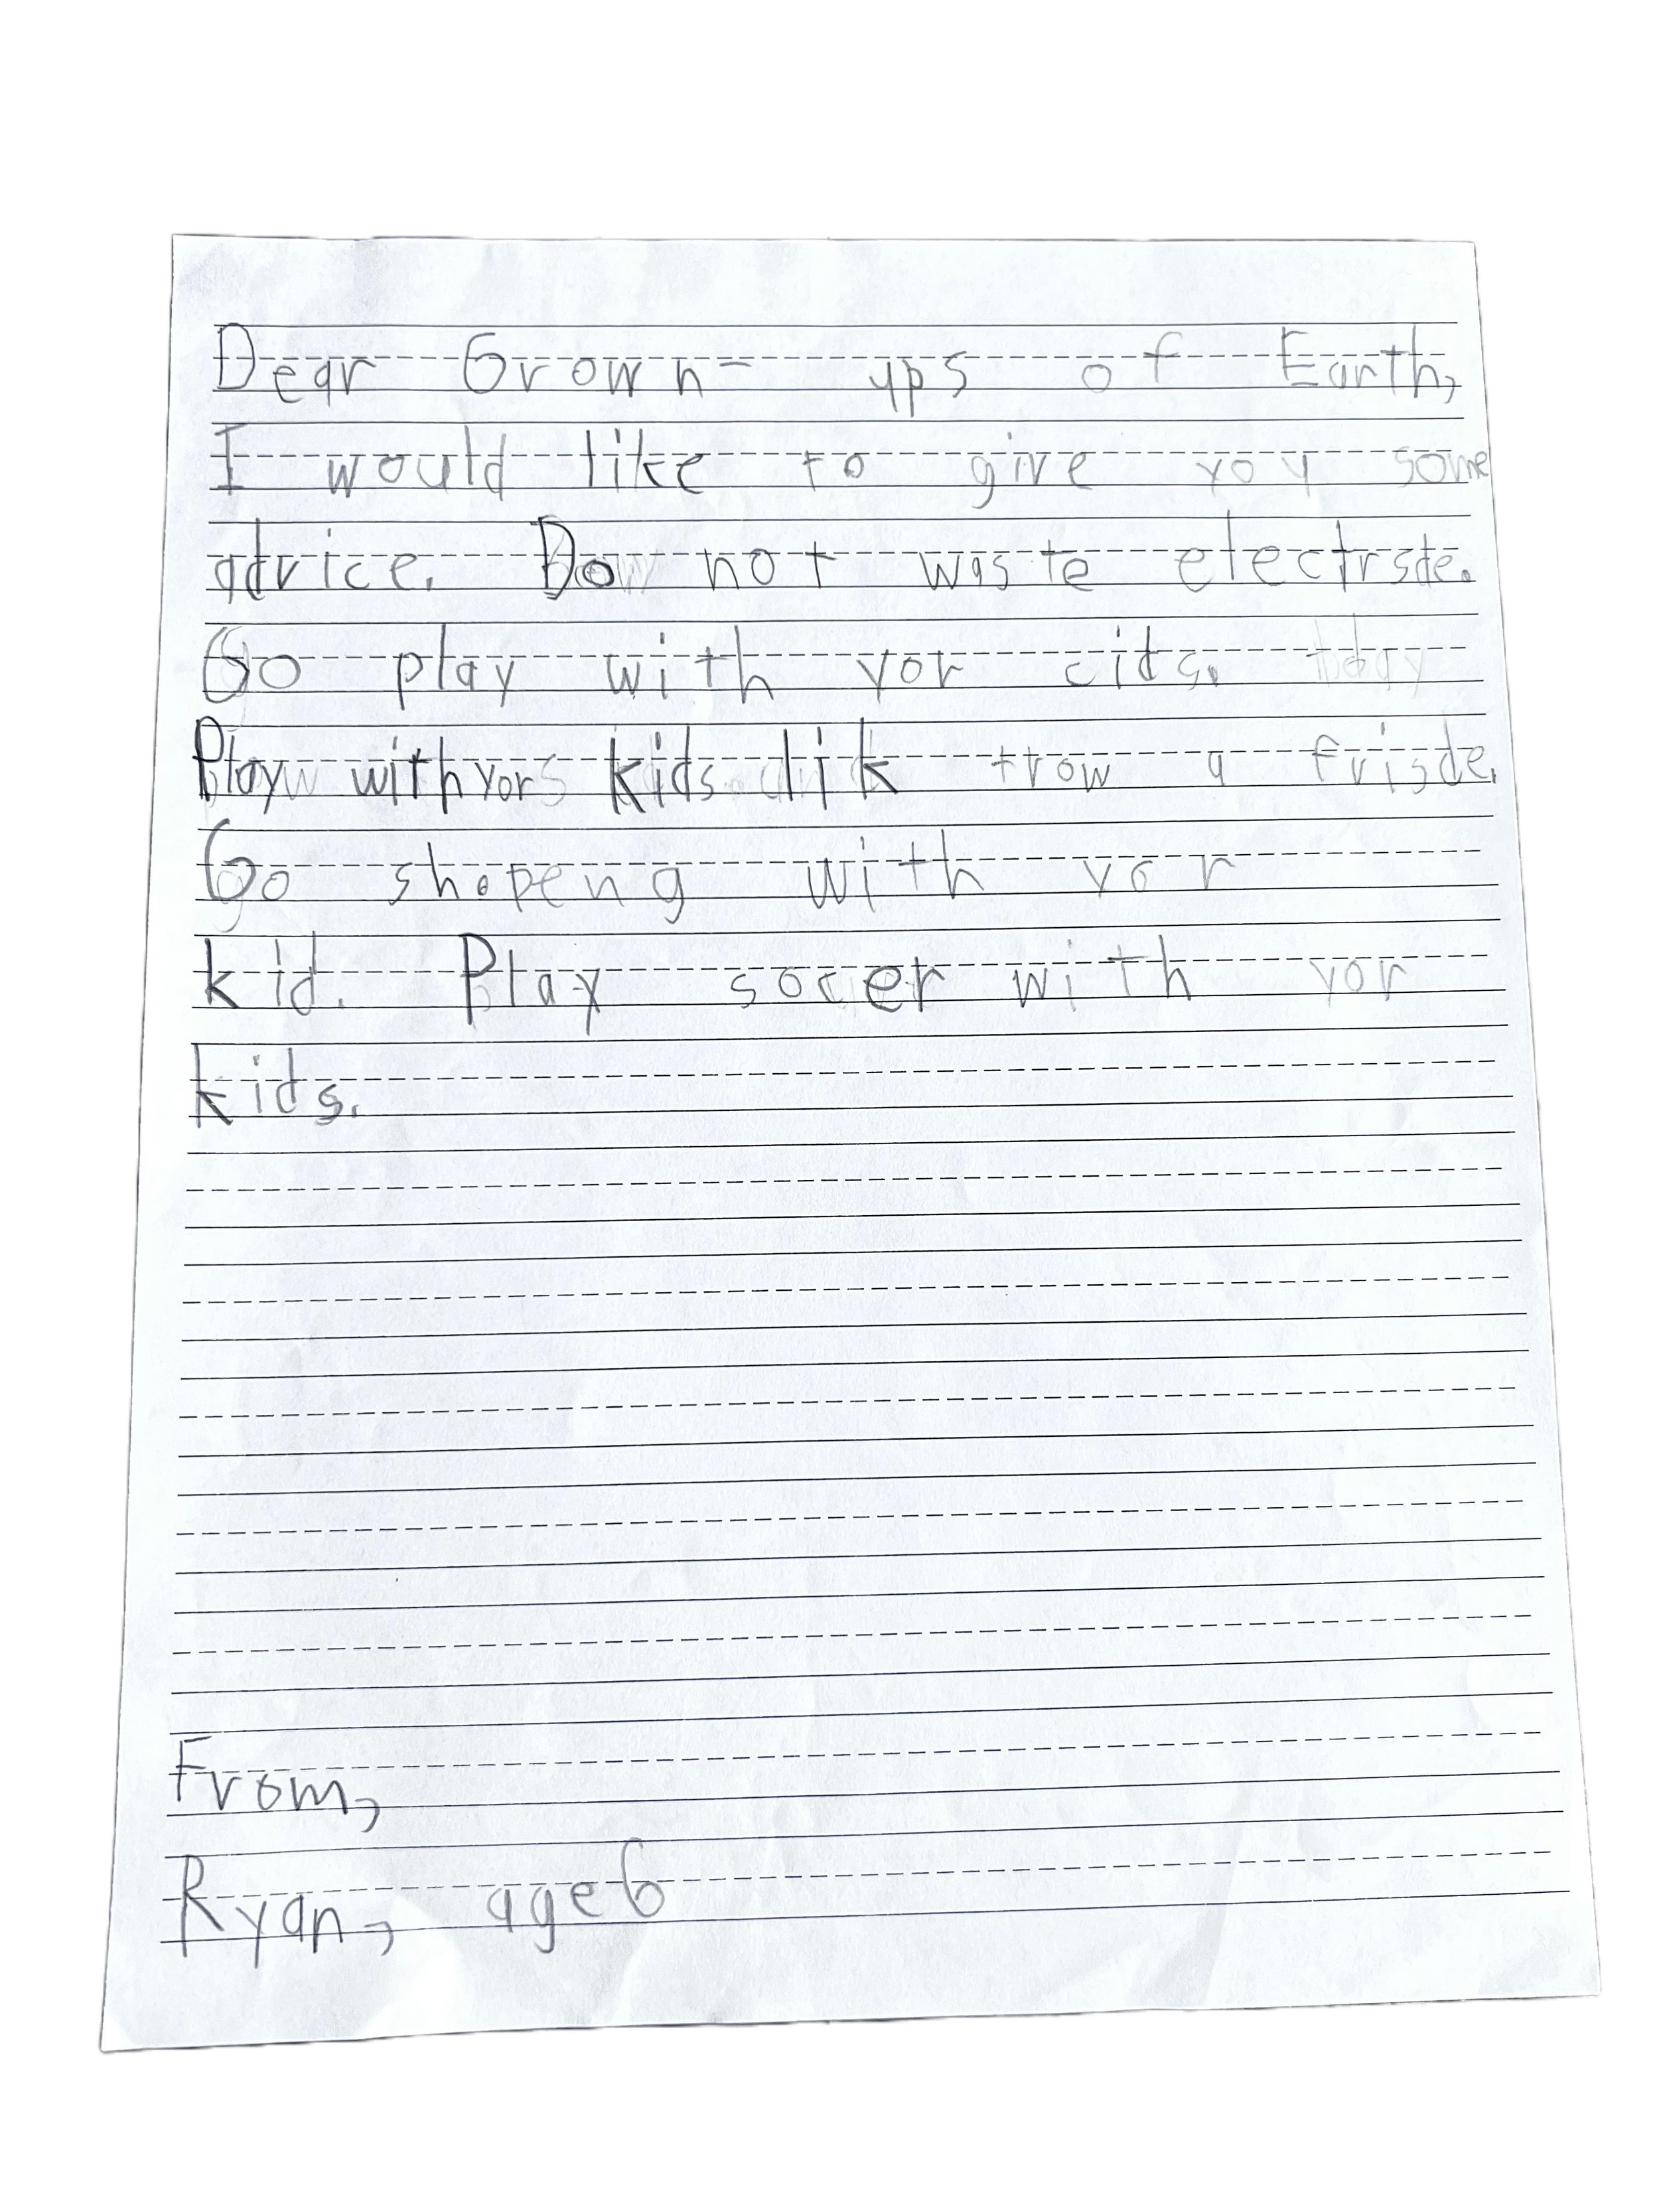 Dear Grown-ups of Earth,
I would like to give you some
advice. Do not waste electrsde.
Go play with yor cids.
Play with yor kids lik trow a frisde.
Go shopeng with yor
kid. Play socer with yor
kids.
From,
Ryan, age 6